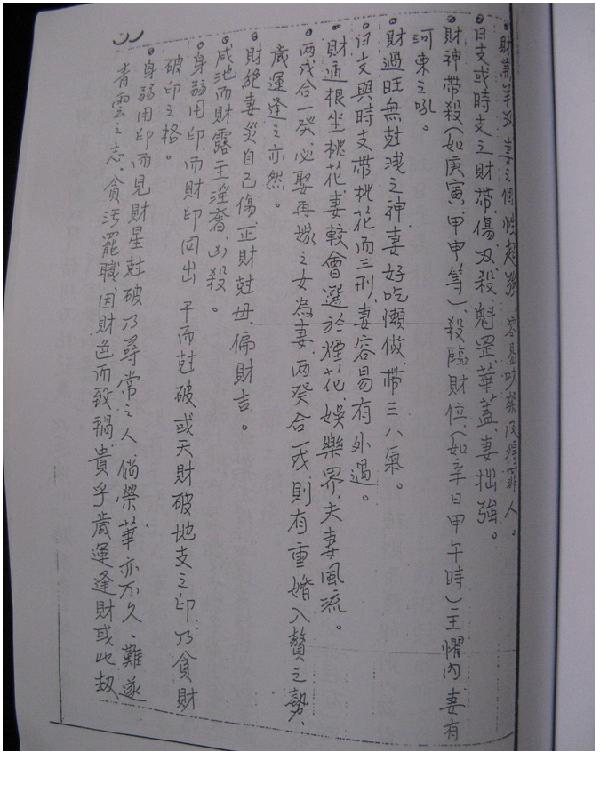 日支或時支之財帶傷、刃、殺、魁罡、華蓋、妻拙強。
財神帶殺(如庚寅、甲申等)、殺臨財位、(如辛日甲午時)主懼內、妻有
河東之吼。
財過旺無尅洩之神、妻好吃懶做、帶三八氣。
日支與時支帶桃花而三刑、妻容易有外遇。
財通根坐桃花、妻較會選於煙花、娛樂界、夫妻風流。
兩戊合一癸、必娶再嫁之女為妻、兩癸合一戊、則有重婚入贅之勢、
歲運逢之亦然。
財絕妻災自己傷、正財尅母、偏財吉。
咸池而財露主淫奢、凶殺。
身弱用印而財印同出干而尅破、或天財破地支之印、乃貪財
破印之格。
身弱用印而見財星尅破乃尋常之人、倘榮華亦不久、難遂
青雲之志。貪污罷職、因財色而致禍、貴乎歲運逢財或比劫